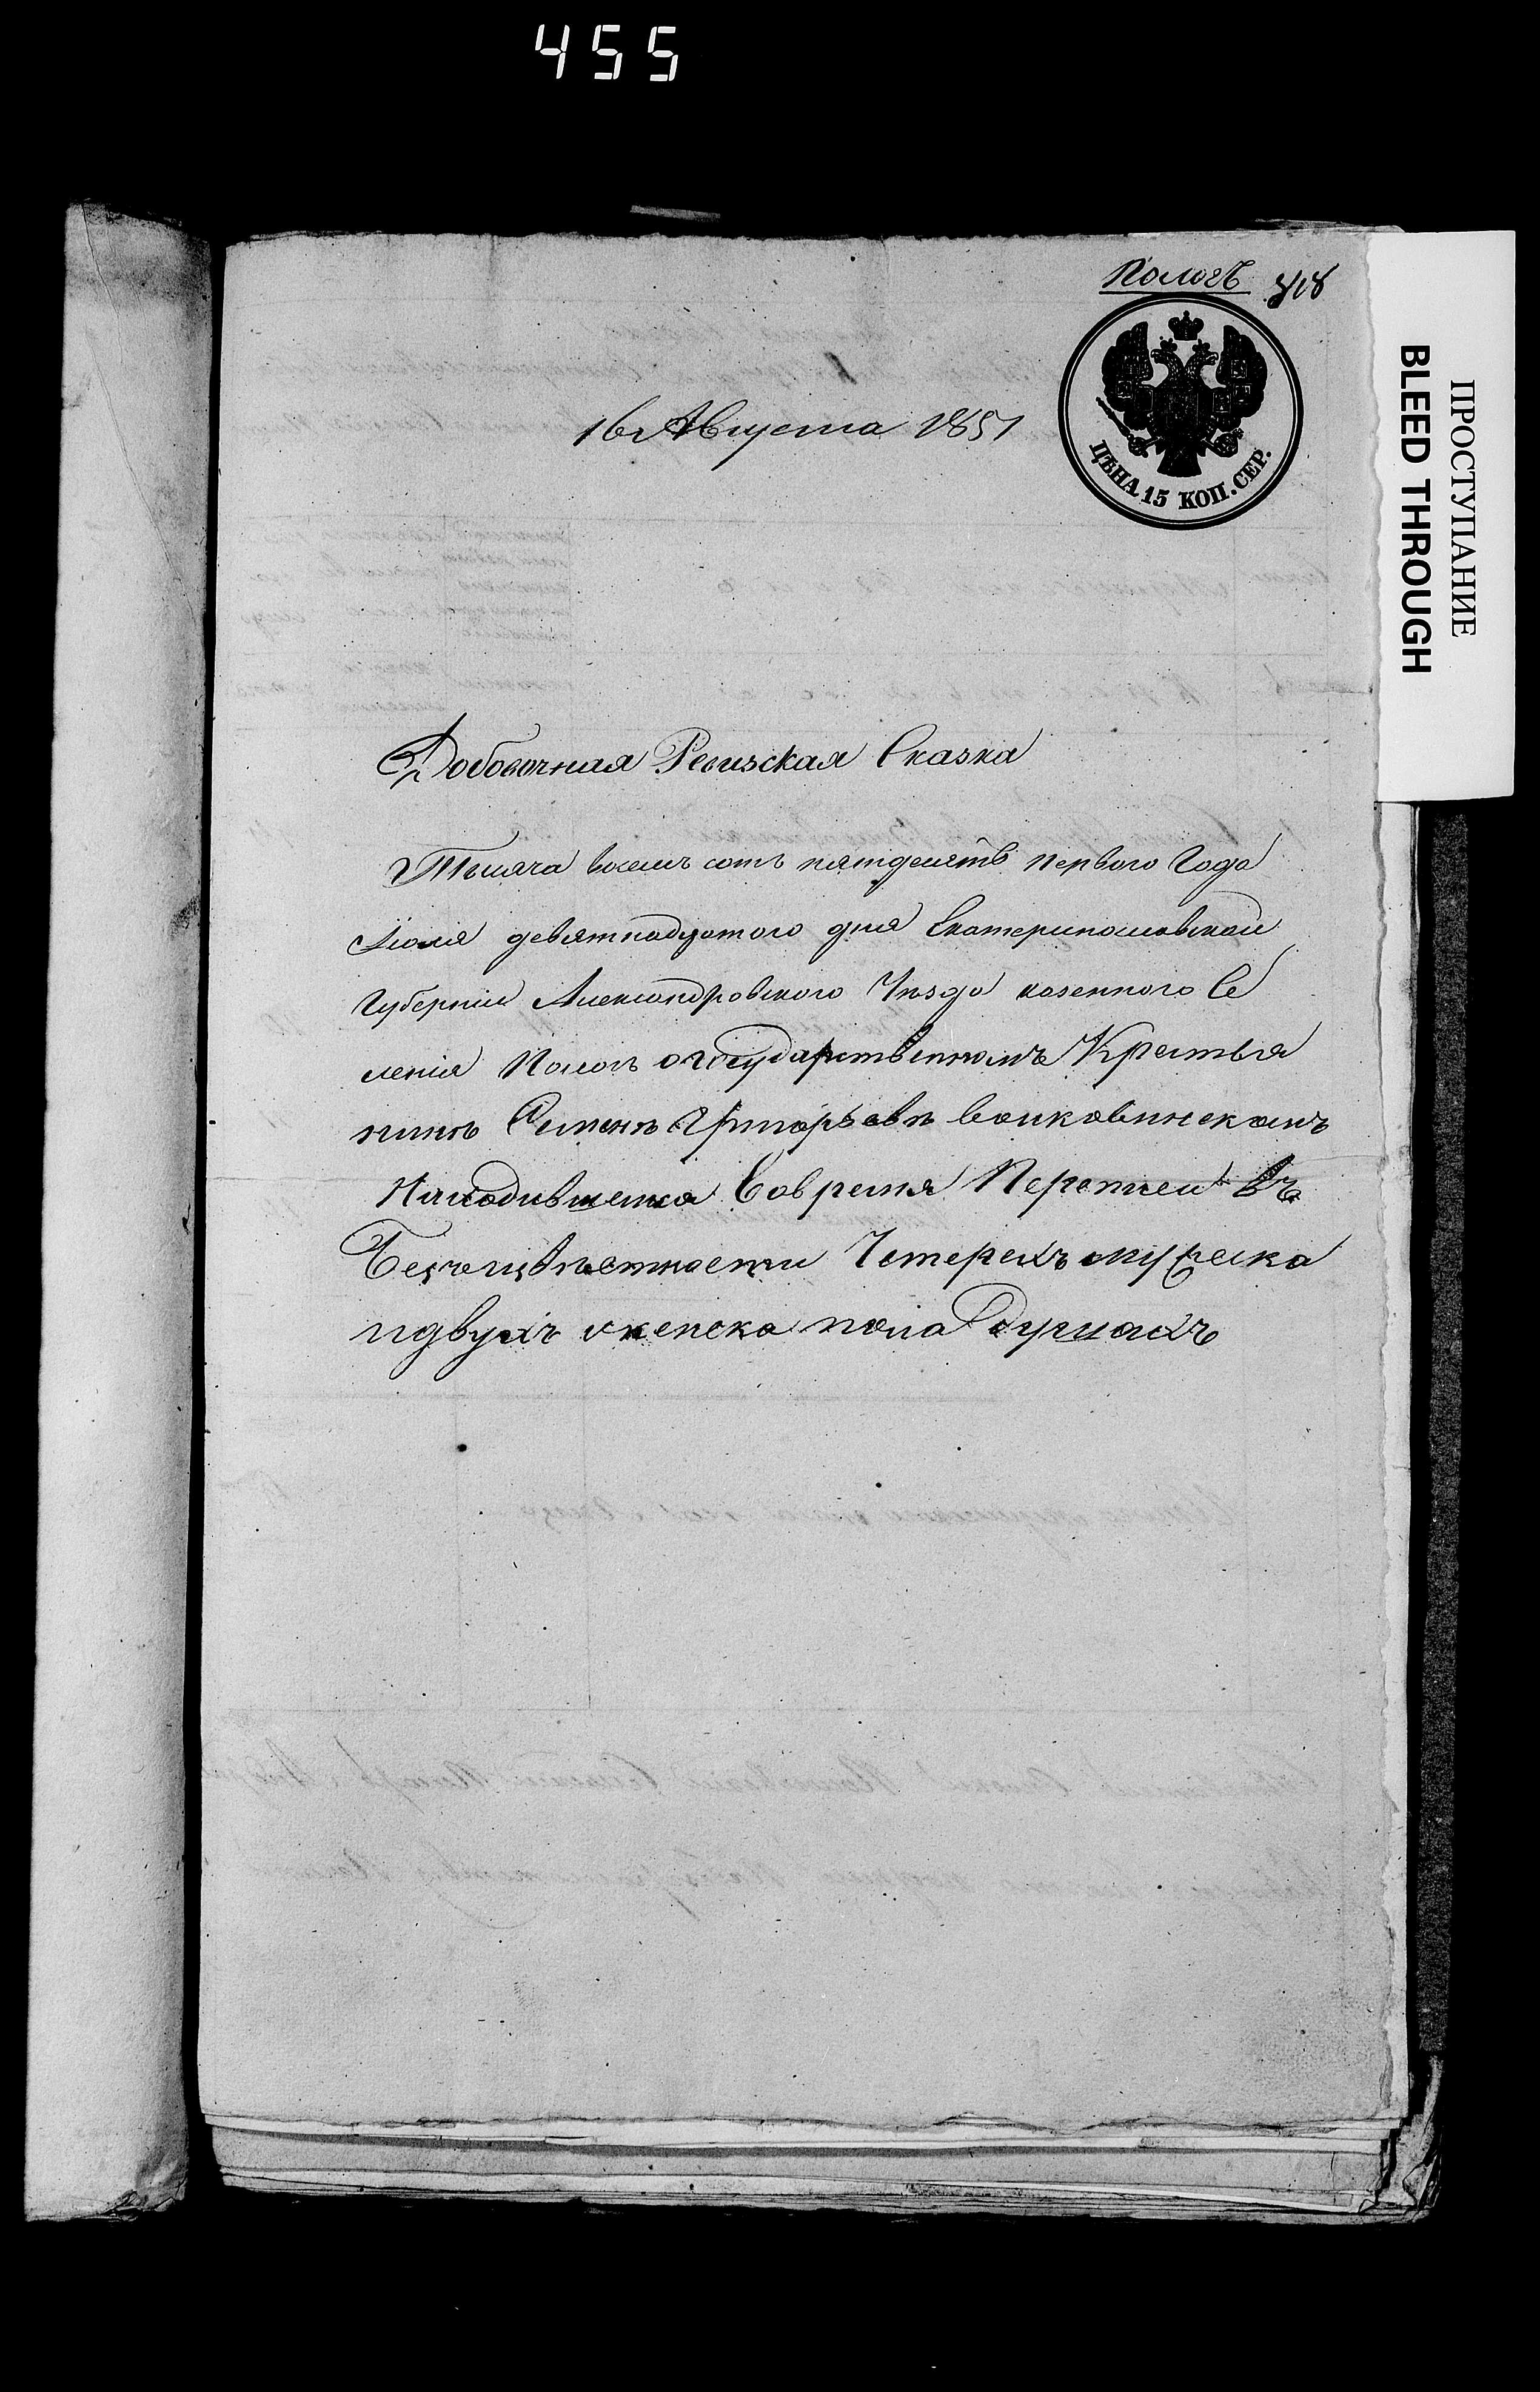 455
Пологъ 318
16 Августа 1851
ЦѢНА 15 КОП. СЕР.
ПРОСТУПАНИЕ
BLEED THROUGH
Добовочная Ревизская Сказка
Тысяча восемъ сотъ пятдесятъ первого Года
Іюля девятнадцатого дня Екатеринославской
Губерніи Александровского Уѣзда казенного Се
ленія Пологъ о государственномъ Крестья
нинѣ Семенѣ Григорьовѣ
Находившемся вовремя Переписи въ
четерехъ мужеска
идвухъ женска пола душахъ